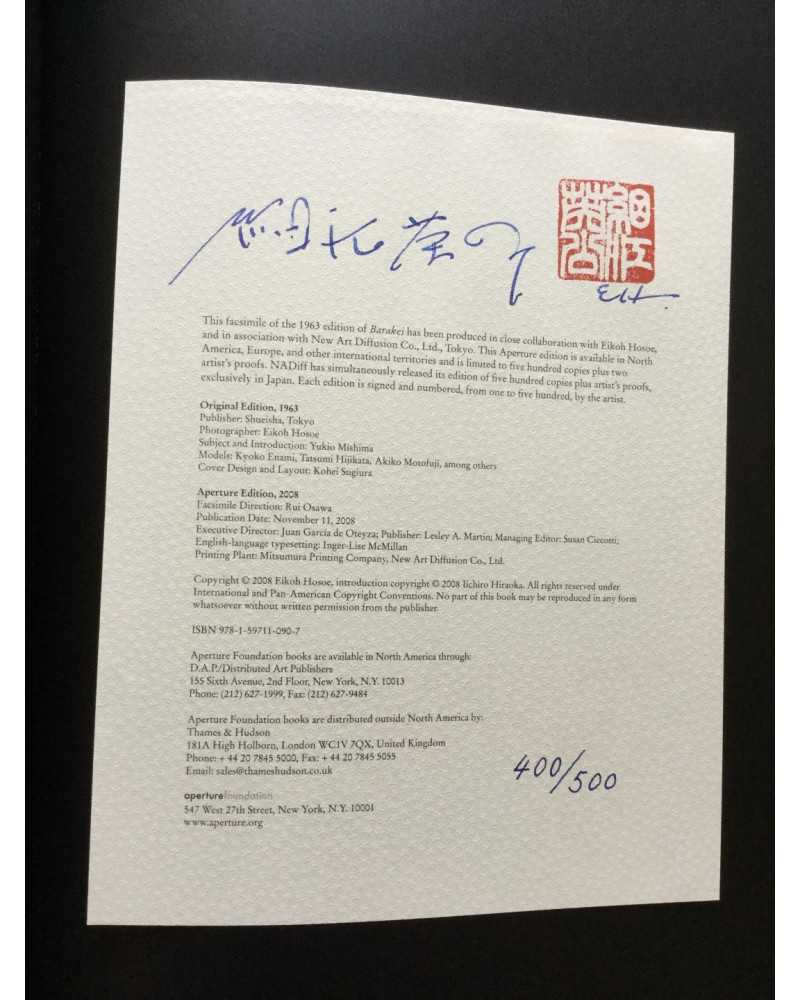 細江英公
細江英公
EH.
This facsimile of the 1963 edition of Barakei has been produced in close collaboration with Eikoh Hosoe,
and in association with New Art Diffusion Co., Ltd., Tokyo. This Aperture edition is available in North
America, Europe, and other international territories and is limited to five hundred copies plus two
artist's proofs. NADiff has simultaneously released its edition of five hundred copies plus artist's proofs,
exclusively in Japan. Each edition is signed and numbered, from one to five hundred, by the artist.
Original Edition, 1963
Publisher: Shueisha, Tokyo
Photographer: Eikoh Hosoe
Subject and Introduction: Yukio Mishima
Models: Kyoko Enami, Tatsumi Hijikata, Akiko Motofuji, among others
Cover Design and Layout: Kohei Sugiura
Aperture Edition, 2008
Facsimile Direction: Rui Osawa
Publication Date: November 11, 2008
Executive Director: Juan García de Oteyza; Publisher: Lesley A. Martin; Managing Editor: Susan Ciccotti;
English-language typesetting: Inger-Lise McMillan
Printing Plant: Mitsumura Printing Company, New Art Diffusion Co., Ltd.
Copyright © 2008 Eikoh Hosoe, introduction copyright © 2008 Iichiro Hiraoka. All rights reserved under
International and Pan-American Copyright Conventions. No part of this book may be reproduced in any form
whatsoever without written permission from the publisher.
ISBN 978-1-59711-090-7
Aperture Foundation books are available in North America through:
D.A.P./Distributed Art Publishers
155 Sixth Avenue, 2nd Floor, New York, N.Y. 10013
Phone: (212) 627-1999, Fax: (212) 627-9484
Aperture Foundation books are distributed outside North America by:
Thames & Hudson
181A High Holborn, London WC1V 7QX, United Kingdom
Phone: + 44 20 7845 5000, Fax: + 44 20 7845 5055
Email: sales@thameshudson.co.uk
400/500
aperturefoundation
547 West 27th Street, New York, N.Y. 10001
www.aperture.org